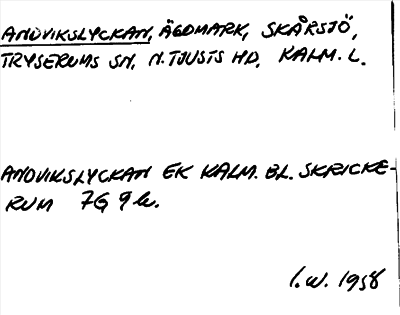 ANDVIKSLYCKAN, ÄGOMARK, SKÅRSJÖ,
TRYSERUMS SN, N. TJUSTS HD, KALM. L.
ANDVIKSLYCKAN EK KALM. BL. SKRICKE-
RUM 7G 9b.
I.W. 1958